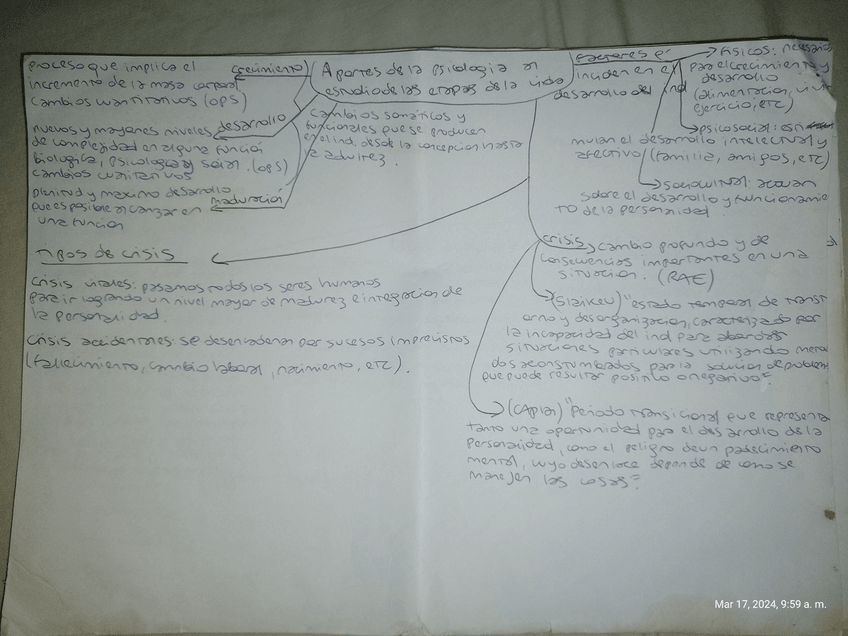 Aportes de la psicologia al
estudio de las etapas de la vida
cambios somáticos y
funcionales que se producen
en el ind. desde la concepcion hasta
la adultez.
crecimiento
proceso que implica el
incremento de la masa corporal
cambios cuantitativos (OPS)
desarrollo
nuevos y mayores niveles
de complejidad en alguna funcion
biologica, psicologica y social. (OPS)
cambios
maduración
plenitud y maximo desarrollo
que es posible alcanzar en
una funcion
factores q'
inciden en el
desarrollo del ind
fisicos: necesarios
para el crecimiento y
desarrollo
(alimentacion,
ejercicio, etc)
psicosocial:
mulan el desarrollo intelectual y
afectivo (familia, amigos, etc)
sociocultural: actuan
sobre el desarrollo y funcionamien
to de la personalidad.
crisis
cambio profundo y de
consecuencias importantes en una
situacion. (RAE)
(Slaikeu) "estado temporal de trast
orno y desorganizacion, caracterizado por
la incapacidad del ind para abordar
situaciones particulares utilizando meto
dos acostumbrados para la solucion de problem
que puede resultar positivo o negativo".
(Caplan) "Periodo transicional que representa
tanto una oportunidad para el desarrollo de la
personalidad, como el peligro de un padecimiento
mental, cuyo desenlace depende de como se
manejen las cosas".
Tipos de crisis
Crisis vitales: pasamos todos los seres humanos
para ir logrando un nivel mayor de madurez e integracion de
la personalidad.
Crisis accidentales: se desencadenan por sucesos imprevistos
(fallecimiento, cambio laboral, nacimiento, etc).
Mar 17, 2024, 9:59 a. m.